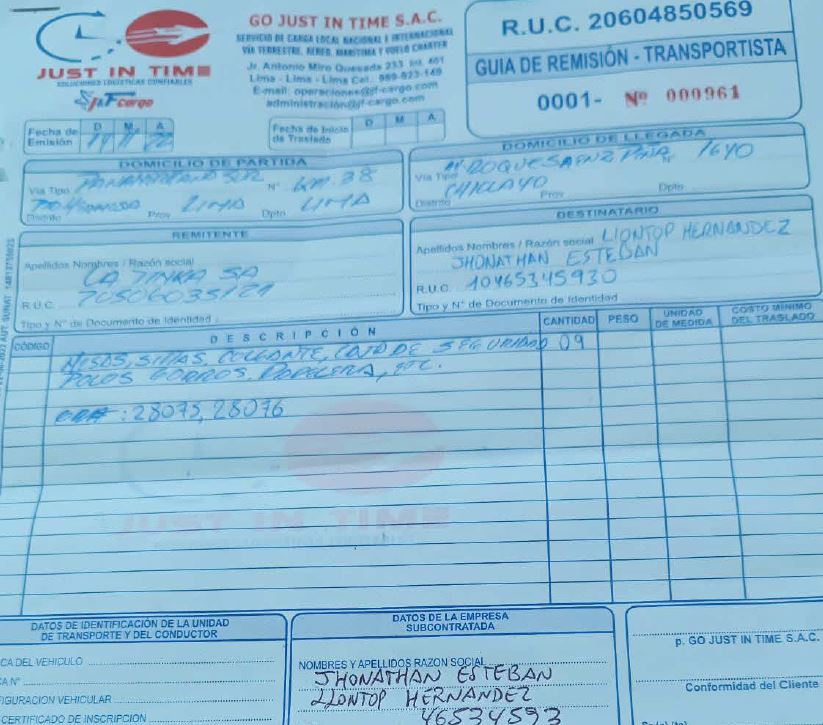 GO JUST IN TIME S.A.C.
SERVICIO DE CARGA LOCAL NACIONAL E INTERNACIONAL
VÍA TERRESTRE, AEREO, MARITIMA Y VUELO CHARTER
Jr. Antonio Miro Quesada 233 Int. 401
Lima - Lima - Lima Cel. 989-823-149
E-mail: operaciones@jf-cargo.com
administración@jf-cargo.com
JUST IN TIME
SOLUCIONES LOGISTICAS CONFIABLES
J&F cargo
R.U.C. 20604850569
GUIA DE REMISIÓN - TRANSPORTISTA
0001- Nº 000961
Fecha de Emisión
D M A
Fecha de Inicio de Traslado
D M A
DOMICILIO DE PARTIDA
Vía Tipo PANAMERICANA SUR Nº KM. 38
Distrito Prov. LIMA Dpto. LIMA
DOMICILIO DE LLEGADA
Vía Tipo AV ROQUE SAENZ PEÑA Nº 1640
CHICLAYO
Distrito Prov. Dpto.
REMITENTE
Apellidos Nombres / Razón social
LA TINKA SA
R.U.C.
Tipo y Nº de Documento de Identidad :
DESTINATARIO
Apellidos Nombres / Razón social LIONTOP HERNANDEZ
JHONATHAN ESTEBAN
R.U.C. 10465345930
Tipo y Nº de Documento de Identidad
CÓDIGO DESCRIPCIÓN CANTIDAD PESO UNIDAD DE MEDIDA COSTO MÍNIMO DEL TRASLADO
MESAS, SILLAS, COLGANTE, CAJA DE SEGURIDAD 09
POLOS GORROS, PAPELERIA, ETC.
: 28075, 28076
JUST IN TIME
DATOS DE IDENTIFICACIÓN DE LA UNIDAD
DE TRANSPORTE Y DEL CONDUCTOR
CA DEL VEHICULO
CA Nº
FIGURACIÓN VEHICULAR
CERTIFICADO DE INSCRIPCION
DATOS DE LA EMPRESA
SUBCONTRATADA
NOMBRES Y APELLIDOS RAZON SOCIAL
JHONATHAN ESTEBAN
LLONTOP HERNANDEZ
46534593
p. GO JUST IN TIME S.A.C.
Conformidad del Cliente